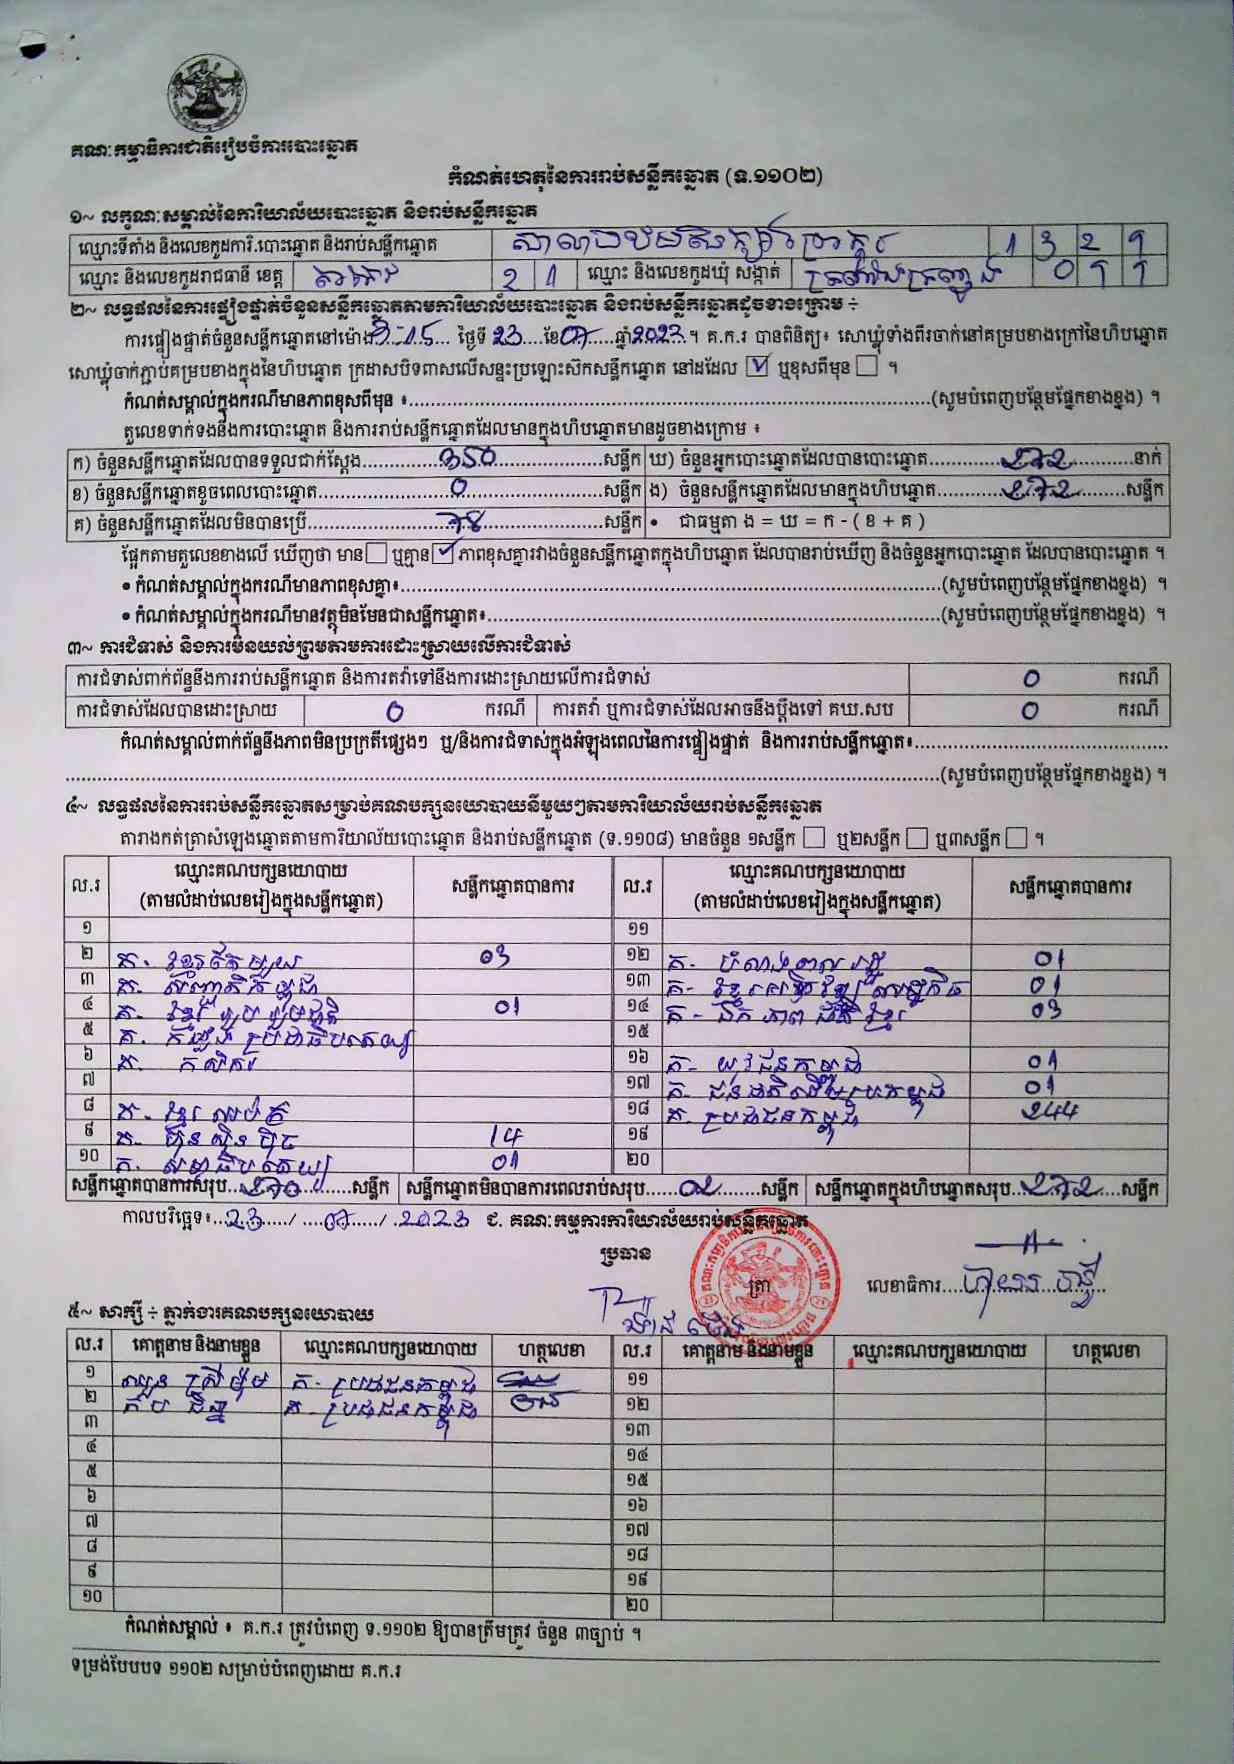 គណៈកម្មាធិការជាតិរៀបចំការបោះឆ្នោត
កំណត់ហេតុនៃការរាប់សន្លឹកឆ្នោត (ទ.១១០២)
១~ លក្ខណៈសម្គាល់នៃការិយាល័យបោះឆ្នោត និងរាប់សន្លឹកឆ្នោត
ឈ្មោះទីតាំង និងលេខកូដការិ.បោះឆ្នោត និងរាប់សន្លឹកឆ្នោត 1 3 2 9
ឈ្មោះ និងលេខកូដរាជធានី ខេត្ត តាកែវ 2 1 ឈ្មោះ និងលេខកូដឃុំ សង្កាត់ 0 1 1
២~ លទ្ធផលនៃការផ្ទៀងផ្ទាត់ចំនួនសន្លឹកឆ្នោតតាមការិយាល័យបោះឆ្នោត និងរាប់សន្លឹកឆ្នោតដូចខាងក្រោម ÷
ការផ្ទៀងផ្ទាត់ចំនួនសន្លឹកឆ្នោតនៅម៉ោង 3-15 ថ្ងៃទី 23 ខែ 07 ឆ្នាំ 2023 ។ គ.ក.រ បានពិនិត្យ៖ សោឃ្លុំទាំងពីរចាក់នៅគម្របខាងក្រៅនៃហិបឆ្នោត
សោឃ្លុំចាក់ភ្ជាប់គម្របខាងក្នុងនៃហិបឆ្នោត ក្រដាសបិទពាសលើសន្ទះប្រឡោះស៊កសន្លឹកឆ្នោត នៅដដែល ☑ ឬខុសពីមុន ☐ ។
កំណត់សម្គាល់ក្នុងករណីមានភាពខុសពីមុន ៖ (សូមបំពេញបន្ថែមផ្នែកខាងខ្នង) ។
តួលេខទាក់ទងនឹងការបោះឆ្នោត និងការរាប់សន្លឹកឆ្នោតដែលមានក្នុងហិបឆ្នោតមានដូចខាងក្រោម ៖
ក) ចំនួនសន្លឹកឆ្នោតដែលបានទទួលជាក់ស្តែង 350 សន្លឹក ឃ) ចំនួនអ្នកបោះឆ្នោតដែលបានបោះឆ្នោត 272 នាក់
ខ) ចំនួនសន្លឹកឆ្នោតខូចពេលបោះឆ្នោត 0 សន្លឹក ង) ចំនួនសន្លឹកឆ្នោតដែលមានក្នុងហិបឆ្នោត 272 សន្លឹក
គ) ចំនួនសន្លឹកឆ្នោតដែលមិនបានប្រើ 78 សន្លឹក • ជាធម្មតា ង = ឃ = ក - ( ខ + គ )
ផ្អែកតាមតួលេខខាងលើ ឃើញថា មាន ☐ ឬគ្មាន ☑ ភាពខុសគ្នារវាងចំនួនសន្លឹកឆ្នោតក្នុងហិបឆ្នោត ដែលបានរាប់ឃើញ និងចំនួនអ្នកបោះឆ្នោត ដែលបានបោះឆ្នោត ។
• កំណត់សម្គាល់ក្នុងករណីមានភាពខុសគ្នា៖ (សូមបំពេញបន្ថែមផ្នែកខាងខ្នង) ។
• កំណត់សម្គាល់ក្នុងករណីមានវត្ថុមិនមែនជាសន្លឹកឆ្នោត៖ (សូមបំពេញបន្ថែមផ្នែកខាងខ្នង) ។
៣~ ការជំទាស់ និងការមិនយល់ព្រមតាមការដោះស្រាយលើការជំទាស់
ការជំទាស់ពាក់ព័ន្ធនឹងការរាប់សន្លឹកឆ្នោត និងការតវ៉ាទៅនឹងការដោះស្រាយលើការជំទាស់ 0 ករណី
ការជំទាស់ដែលបានដោះស្រាយ 0 ករណី ការតវ៉ា ឬការជំទាស់ដែលអាចនឹងប្តឹងទៅ គឃ.សប 0 ករណី
កំណត់សម្គាល់ពាក់ព័ន្ធនឹងភាពមិនប្រក្រតីផ្សេងៗ ឬ/និងការជំទាស់ក្នុងអំឡុងពេលនៃការផ្ទៀងផ្ទាត់ និងការរាប់សន្លឹកឆ្នោត៖
(សូមបំពេញបន្ថែមផ្នែកខាងខ្នង) ។
៤~ លទ្ធផលនៃការរាប់សន្លឹកឆ្នោតសម្រាប់គណបក្សនយោបាយនីមួយៗតាមការិយាល័យរាប់សន្លឹកឆ្នោត
តារាងកត់ត្រាសំឡេងឆ្នោតតាមការិយាល័យបោះឆ្នោត និងរាប់សន្លឹកឆ្នោត (ទ.១១០៨) មានចំនួន ១សន្លឹក ☐ ឬ២សន្លឹក ☐ ឬ៣សន្លឹក ☐ ។
ល.រ ឈ្មោះគណបក្សនយោបាយ (តាមលំដាប់លេខរៀងក្នុងសន្លឹកឆ្នោត) សន្លឹកឆ្នោតបានការ ល.រ ឈ្មោះគណបក្សនយោបាយ (តាមលំដាប់លេខរៀងក្នុងសន្លឹកឆ្នោត) សន្លឹកឆ្នោតបានការ
១ ១១
២ គ. ខ្មែរតែមួយ 03 ១២ គ. 01
៣ ១៣ 01
៤ គ. ខ្មែររួបរួមជាតិ 01 ១៤ គ- ឯកភាពជាតិខ្មែរ 03
៥ ១៥
៦ គ. កសិករ ១៦ គ- យុវជនកម្ពុជា 01
៧ ១៧ គ- ជនជាតិដើមប្រកម្ពុជា 01
៨ ១៨ គ. ប្រជាជនកម្ពុជា 244
៩ គ. ហ្វ៊ុនស៊ិនប៉ិច 14 ១៩
១០ 01 ២០
សន្លឹកឆ្នោតបានការសរុប 270 សន្លឹក សន្លឹកឆ្នោតមិនបានការពេលរាប់សរុប 02 សន្លឹក សន្លឹកឆ្នោតក្នុងហិបឆ្នោតសរុប 272 សន្លឹក
កាលបរិច្ឆេទ៖ 23 / 07 / 2023 ជ. គណៈកម្មការការិយាល័យរាប់សន្លឹកឆ្នោត
ប្រធាន
ត្រា
លេខាធិការ
៥~ សាក្សី ÷ ភ្នាក់ងារគណបក្សនយោបាយ
ល.រ គោត្តនាម និងនាមខ្លួន ឈ្មោះគណបក្សនយោបាយ ហត្ថលេខា ល.រ គោត្តនាម និងនាមខ្លួន ឈ្មោះគណបក្សនយោបាយ ហត្ថលេខា
១ គ- ប្រជាជនកម្ពុជា ១១
២ គ. ប្រជាជនកម្ពុជា ១២
៣ ១៣
៤ ១៤
៥ ១៥
៦ ១៦
៧ ១៧
៨ ១៨
៩ ១៩
១០ ២០
កំណត់សម្គាល់ ៖ គ.ក.រ ត្រូវបំពេញ ទ.១១០២ ឱ្យបានត្រឹមត្រូវ ចំនួន ៣ច្បាប់ ។
ទម្រង់បែបបទ ១១០២ សម្រាប់បំពេញដោយ គ.ក.រ